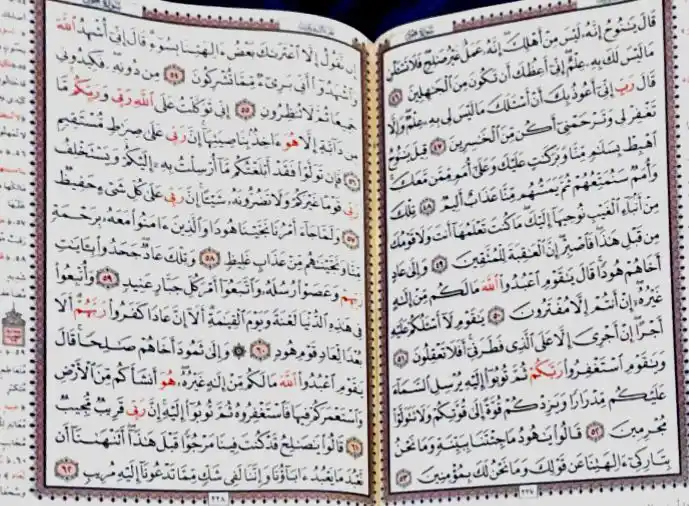 قَالَ يَٰنُوحُ إِنَّهُۥ لَيْسَ مِنْ أَهْلِكَ إِنَّهُۥ عَمَلٌ غَيْرُ صَٰلِحٍ فَلَا تَسْـَٔلْنِ
مَا لَيْسَ لَكَ بِهِۦ عِلْمٌ إِنِّىٓ أَعِظُكَ أَن تَكُونَ مِنَ ٱلْجَٰهِلِينَ ٤٦
قَالَ رَبِّ إِنِّىٓ أَعُوذُ بِكَ أَنْ أَسْـَٔلَكَ مَا لَيْسَ لِى بِهِۦ عِلْمٌ وَإِلَّا
تَغْفِرْ لِى وَتَرْحَمْنِىٓ أَكُن مِّنَ ٱلْخَٰسِرِينَ ٤٧ قِيلَ يَٰنُوحُ
ٱهْبِطْ بِسَلَٰمٍ مِّنَّا وَبَرَكَٰتٍ عَلَيْكَ وَعَلَىٰٓ أُمَمٍ مِّمَّن مَّعَكَ
وَأُمَمٌ سَنُمَتِّعُهُمْ ثُمَّ يَمَسُّهُم مِّنَّا عَذَابٌ أَلِيمٌ ٤٨ تِلْكَ
مِنْ أَنۢبَآءِ ٱلْغَيْبِ نُوحِيهَآ إِلَيْكَ مَا كُنتَ تَعْلَمُهَآ أَنتَ وَلَا قَوْمُكَ
مِن قَبْلِ هَٰذَا فَٱصْبِرْ إِنَّ ٱلْعَٰقِبَةَ لِلْمُتَّقِينَ ٤٩ وَإِلَىٰ عَادٍ
أَخَاهُمْ هُودًا قَالَ يَٰقَوْمِ ٱعْبُدُوا۟ ٱللَّهَ مَا لَكُم مِّنْ إِلَٰهٍ
غَيْرُهُۥٓ إِنْ أَنتُمْ إِلَّا مُفْتَرُونَ ٥٠ يَٰقَوْمِ لَآ أَسْـَٔلُكُمْ عَلَيْهِ
أَجْرًا إِنْ أَجْرِىَ إِلَّا عَلَى ٱلَّذِى فَطَرَنِىٓ أَفَلَا تَعْقِلُونَ ٥١
وَيَٰقَوْمِ ٱسْتَغْفِرُوا۟ رَبَّكُمْ ثُمَّ تُوبُوٓا۟ إِلَيْهِ يُرْسِلِ ٱلسَّمَآءَ
عَلَيْكُم مِّدْرَارًا وَيَزِدْكُمْ قُوَّةً إِلَىٰ قُوَّتِكُمْ وَلَا تَتَوَلَّوْا۟
مُجْرِمِينَ ٥٢ قَالُوا۟ يَٰهُودُ مَا جِئْتَنَا بِبَيِّنَةٍ وَمَا نَحْنُ
بِتَارِكِىٓ ءَالِهَتِنَا عَن قَوْلِكَ وَمَا نَحْنُ لَكَ بِمُؤْمِنِينَ ٥٣
٢٢٧
إِن نَّقُولُ إِلَّا ٱعْتَرَىٰكَ بَعْضُ ءَالِهَتِنَا بِسُوٓءٍ قَالَ إِنِّىٓ أُشْهِدُ ٱللَّهَ
وَٱشْهَدُوٓا۟ أَنِّى بَرِىٓءٌ مِّمَّا تُشْرِكُونَ ٥٤ مِن دُونِهِۦ فَكِيدُونِى
جَمِيعًا ثُمَّ لَا تُنظِرُونِ ٥٥ إِنِّى تَوَكَّلْتُ عَلَى ٱللَّهِ رَبِّى وَرَبِّكُم مَّا
مِن دَآبَّةٍ إِلَّا هُوَ ءَاخِذٌۢ بِنَاصِيَتِهَآ إِنَّ رَبِّى عَلَىٰ صِرَٰطٍ مُّسْتَقِيمٍ
٥٦ فَإِن تَوَلَّوْا۟ فَقَدْ أَبْلَغْتُكُم مَّآ أُرْسِلْتُ بِهِۦٓ إِلَيْكُمْ وَيَسْتَخْلِفُ
رَبِّى قَوْمًا غَيْرَكُمْ وَلَا تَضُرُّونَهُۥ شَيْـًٔا إِنَّ رَبِّى عَلَىٰ كُلِّ شَىْءٍ حَفِيظٌ
٥٧ وَلَمَّا جَآءَ أَمْرُنَا نَجَّيْنَا هُودًا وَٱلَّذِينَ ءَامَنُوا۟ مَعَهُۥ بِرَحْمَةٍ
مِّنَّا وَنَجَّيْنَٰهُم مِّنْ عَذَابٍ غَلِيظٍ ٥٨ وَتِلْكَ عَادٌ جَحَدُوا۟ بِـَٔايَٰتِ
رَبِّهِمْ وَعَصَوْا۟ رُسُلَهُۥ وَٱتَّبَعُوٓا۟ أَمْرَ كُلِّ جَبَّارٍ عَنِيدٍ ٥٩ وَأُتْبِعُوا۟
فِى هَٰذِهِ ٱلدُّنْيَا لَعْنَةً وَيَوْمَ ٱلْقِيَٰمَةِ أَلَآ إِنَّ عَادًا كَفَرُوا۟ رَبَّهُمْ أَلَا
بُعْدًا لِّعَادٍ قَوْمِ هُودٍ ٦٠ ۞ وَإِلَىٰ ثَمُودَ أَخَاهُمْ صَٰلِحًا قَالَ
يَٰقَوْمِ ٱعْبُدُوا۟ ٱللَّهَ مَا لَكُم مِّنْ إِلَٰهٍ غَيْرُهُۥ هُوَ أَنشَأَكُم مِّنَ ٱلْأَرْضِ
وَٱسْتَعْمَرَكُمْ فِيهَا فَٱسْتَغْفِرُوهُ ثُمَّ تُوبُوٓا۟ إِلَيْهِ إِنَّ رَبِّى قَرِيبٌ مُّجِيبٌ
٦١ قَالُوا۟ يَٰصَٰلِحُ قَدْ كُنتَ فِينَا مَرْجُوًّا قَبْلَ هَٰذَآ أَتَنْهَىٰنَآ أَن
نَّعْبُدَ مَا يَعْبُدُ ءَابَآؤُنَا وَإِنَّنَا لَفِى شَكٍّ مِّمَّا تَدْعُونَآ إِلَيْهِ مُرِيبٍ ٦٢
٢٢٨